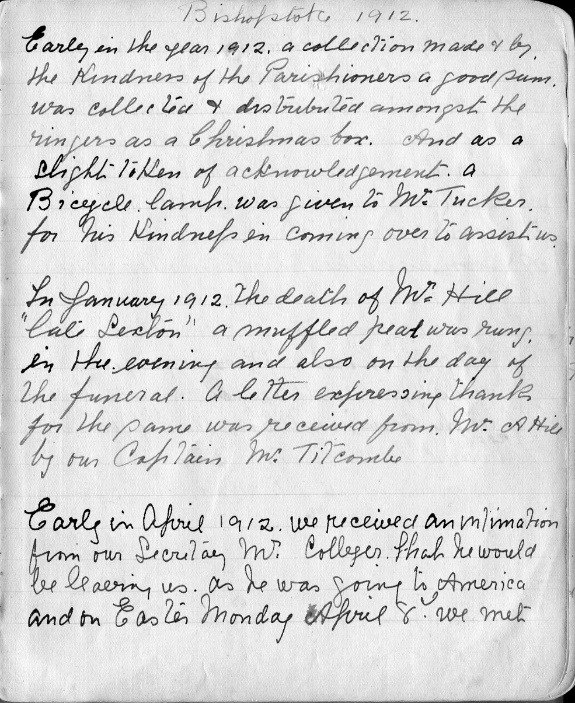 Bishopstoke 1912.
Early in the year 1912. a collection made & by.
the Kindness of the Parishioners a good sum.
was collected & distributed amongst the
ringers as a Christmas box. And as a
slight token of acknowledgement. a
Bicycle lamp. was given to Mr. Tucker.
for his Kindness in coming over to assist us.
In January 1912. The death of Mr. Hill
"late Sexton" a muffled peal was rung.
in the evening and also on the day of
the funeral. A letter expressing thanks
for the same was received from. Mr. A Hill
by our Captain Mr. Titcombe
Early in April 1912. we received an intimation
from our Secretary Mr. Colleger. that he would
be leaving us. as he was going to America
and on Easter Monday April 8. we met